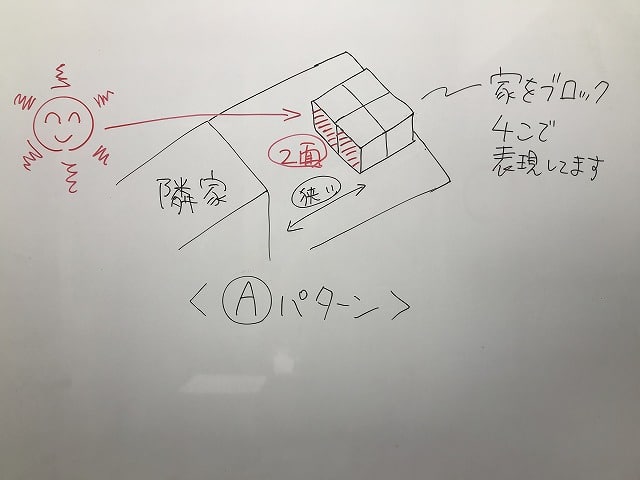 家をブロック
4こで
表現してます
2面
隣家
狭い
< Ⓐパターン >